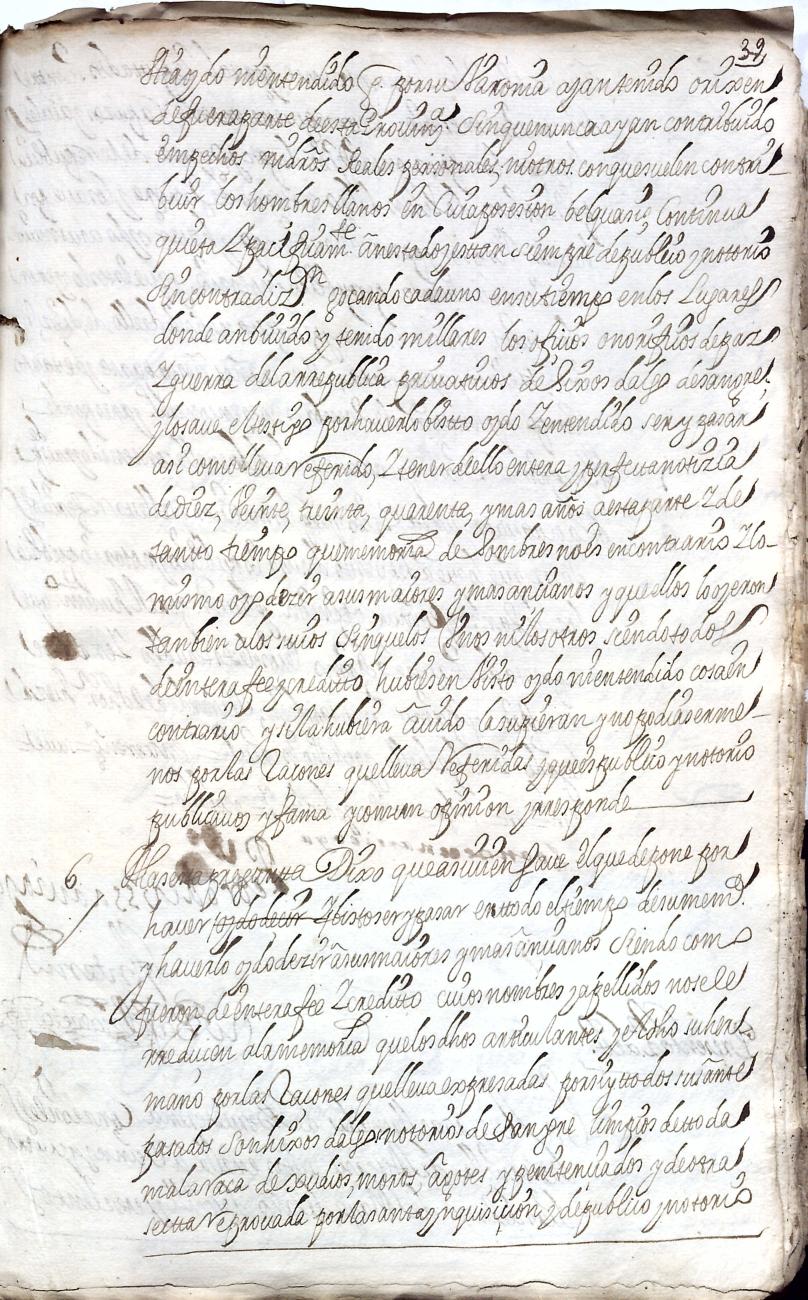 39
oydo ni entendido q. por su Varonia ayan tenido orixen
de fuera parte de esta Provin.ª Sin que nunca ayan contribuido
em pechos ni dros. Reales personales, ni otros. con que suelen contri-
buir los hombres llanos en Cuia posesion bel quasi Continua
quieta Y pacificam.te an estado y estan siempre de publico y notorio
sin contradiz.on gocando cada uno en su tiempo en los Lugares
donde an biuido y tenido millares los ofiuios onorificos de paz
Y guerra de la rrepublica priuatiuos de hixos dalgo de sangre.
y lo saue el testigo por hauerlo bistto oydo Y entendido ser y pasar
asi como lleua referido, Y tener de ello entera y perfecta notizia
de diez, Veinte, treinta, quarenta, y mas años a esta parte Y de
tantto tiempo que memoria de hombres no es en contrario Y lo-
mismo oyo dezir a sus maiores y mas ancianos y que ellos lo oyeron
tambien a los suios Sin que los Vnos ni llos otros siendo todos
de entera fee y creditto hubiesen Visto oydo ni entendido cosa en
contrario y si lla hubiera auido la supieran y no podia ser me-
nos por las Racones que lleua Referidas y que es publico y notorio
publica vos y fama y comun opinion y rresponde
6 A la sesta pregunta Dixo que asi uien saue el que depone por
hauer oydo decir Y bisto ser y pasar en ttodo el tiempo de su mem.ª
y hauerlo oydo dezir a sus maiores y mas ancianos siendo como
fueron de entera fee Y creditto cuios nombres y apellidos no se le
rreducen a la memoria que los dhos articulantes y el dho su her-
mano por las Racones que lleua expresadas por si y ttodos sus ante
pasados son hixos dalgo notorios de Sangre limpios de toda
mala raca de xudios, moros, agotes, y penitenciados y de otra
sectta Reprouada por la santa ynquisicion y de publico y notorio